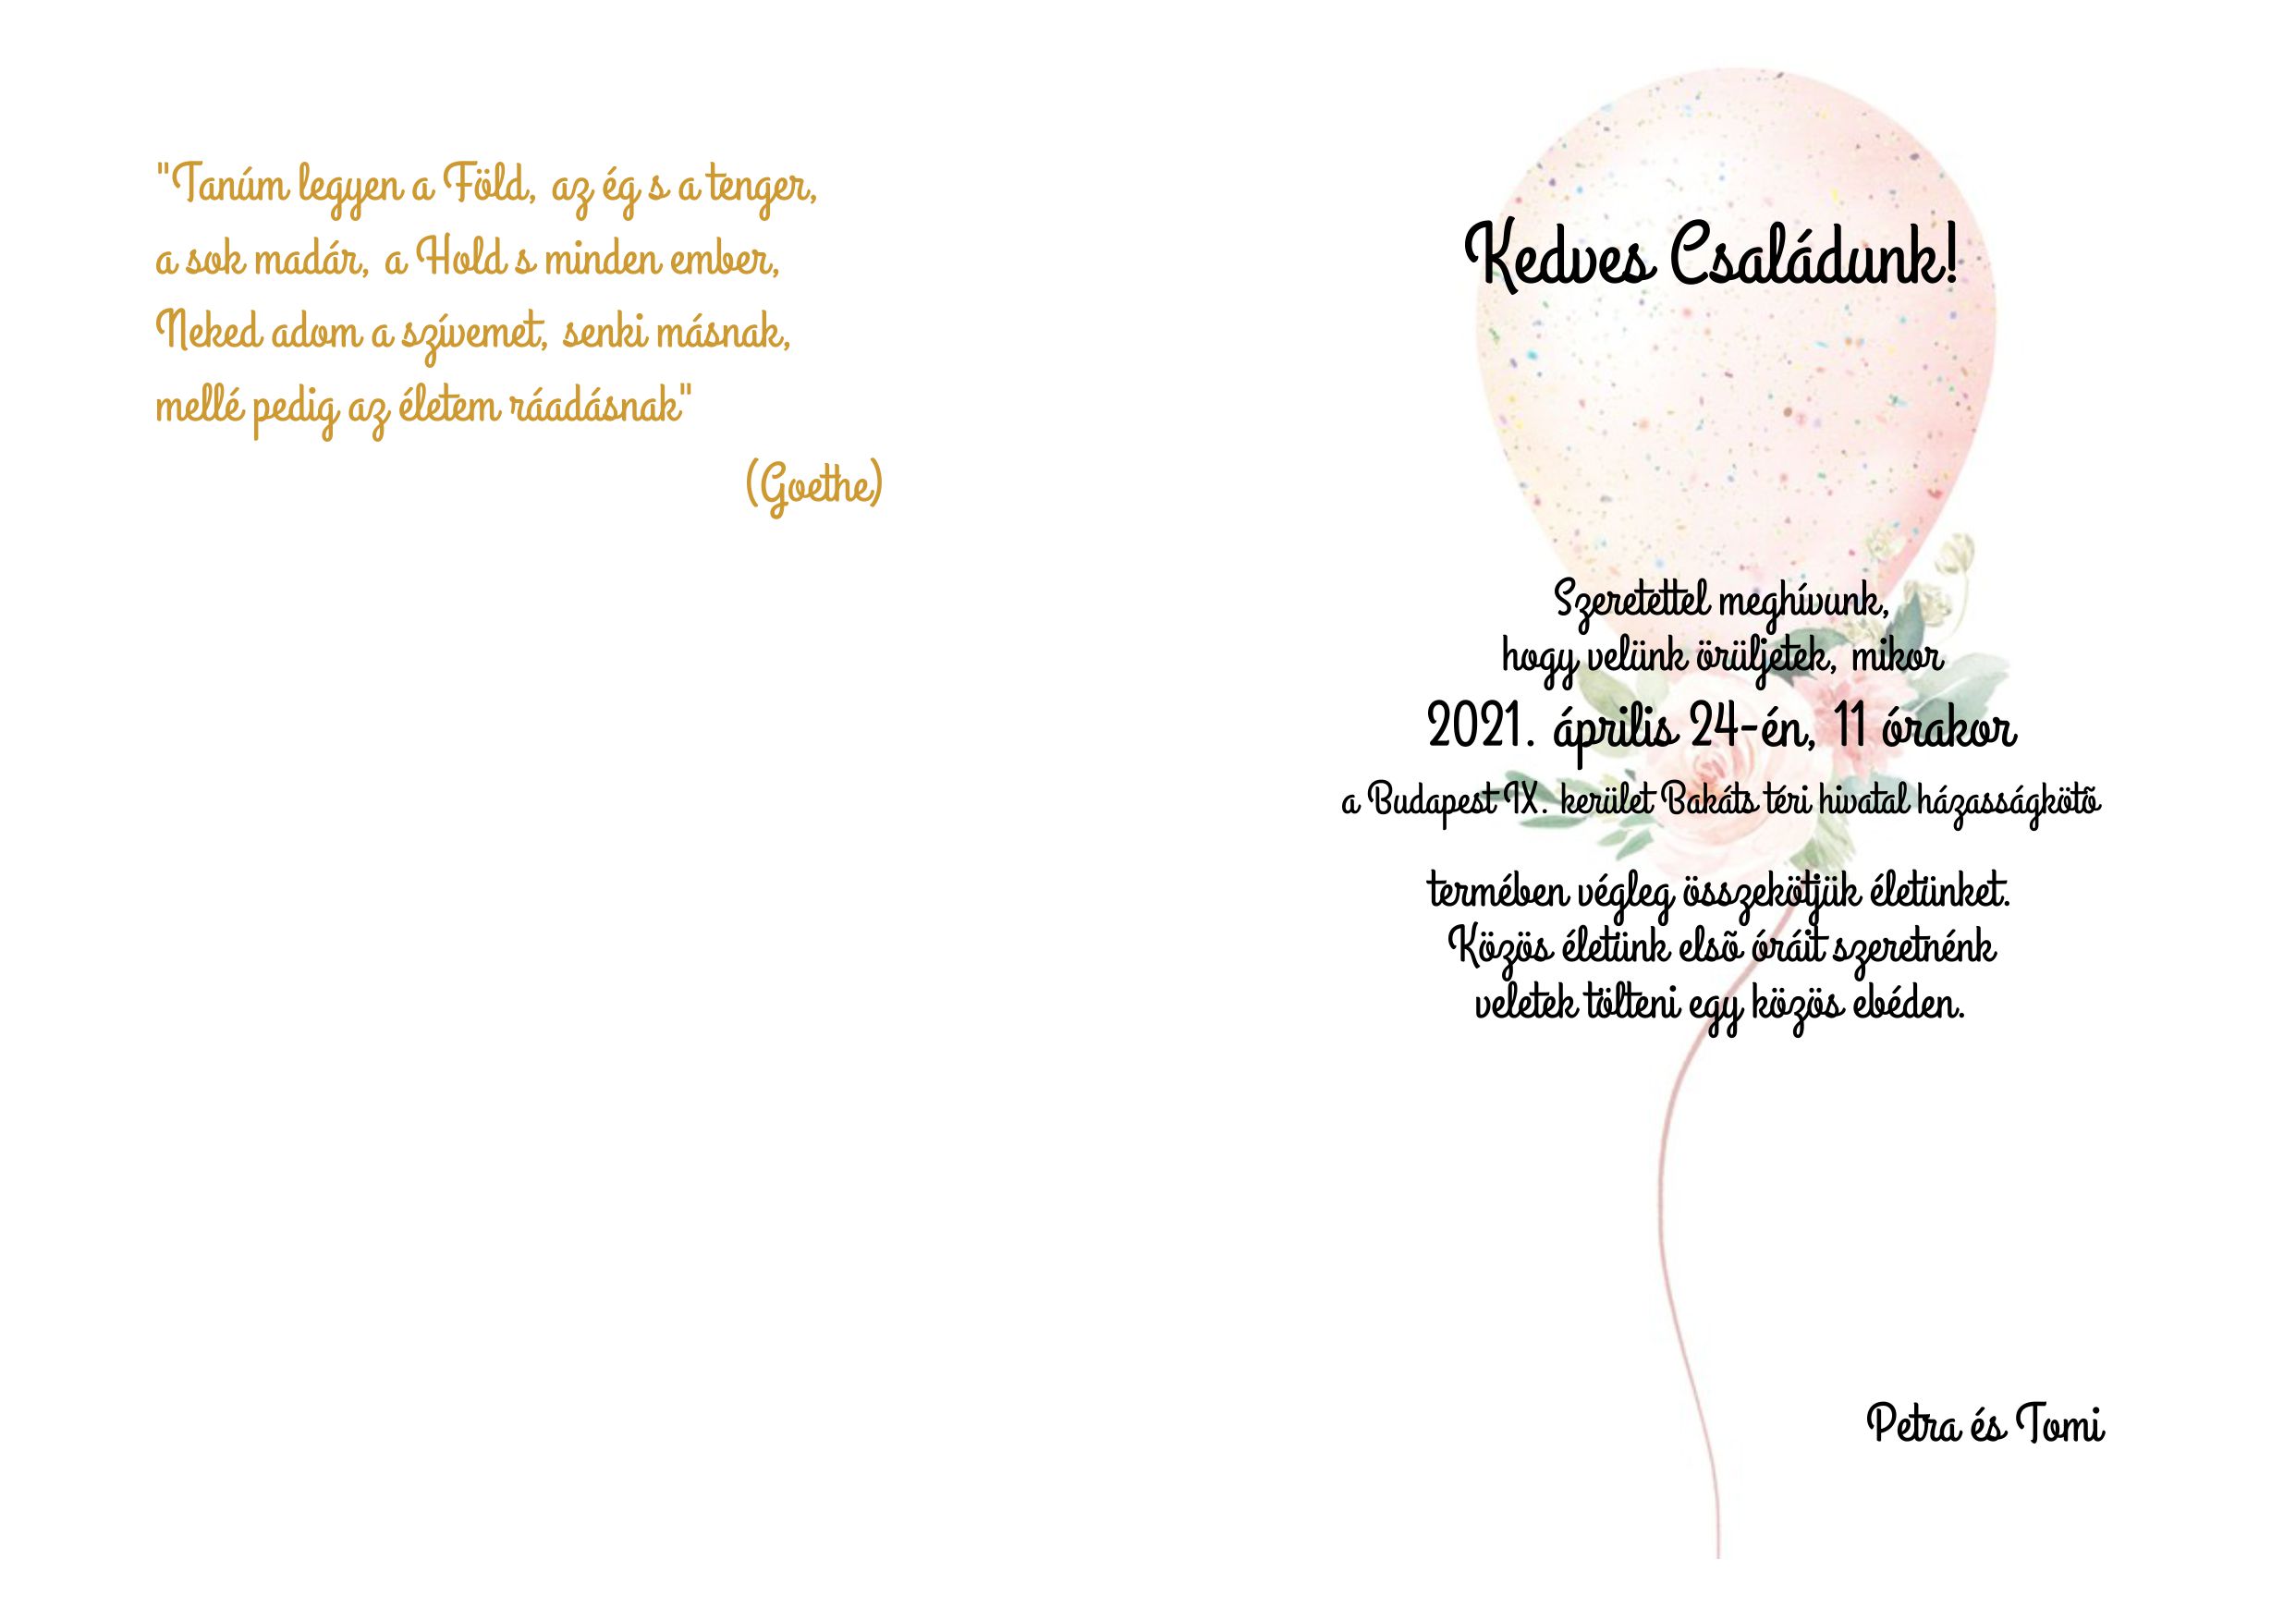 "Tanúm legyen a Föld, az ég s a tenger,
a sok madár, a Hold s minden ember,
Neked adom a szívemet, senki másnak,
mellé pedig az életem ráadásnak"
(Goethe)
Kedves Családunk!
Szeretettel meghívunk,
hogy velünk örüljetek, mikor
2021. április 24-én, 11 órakor
a Budapest IX. kerület Bakáts téri hivatal házasságkötõ
termében végleg összekötjük életünket.
Közös életünk elsõ óráit szeretnénk
veletek tölteni egy közös ebéden.
Petra és Tomi